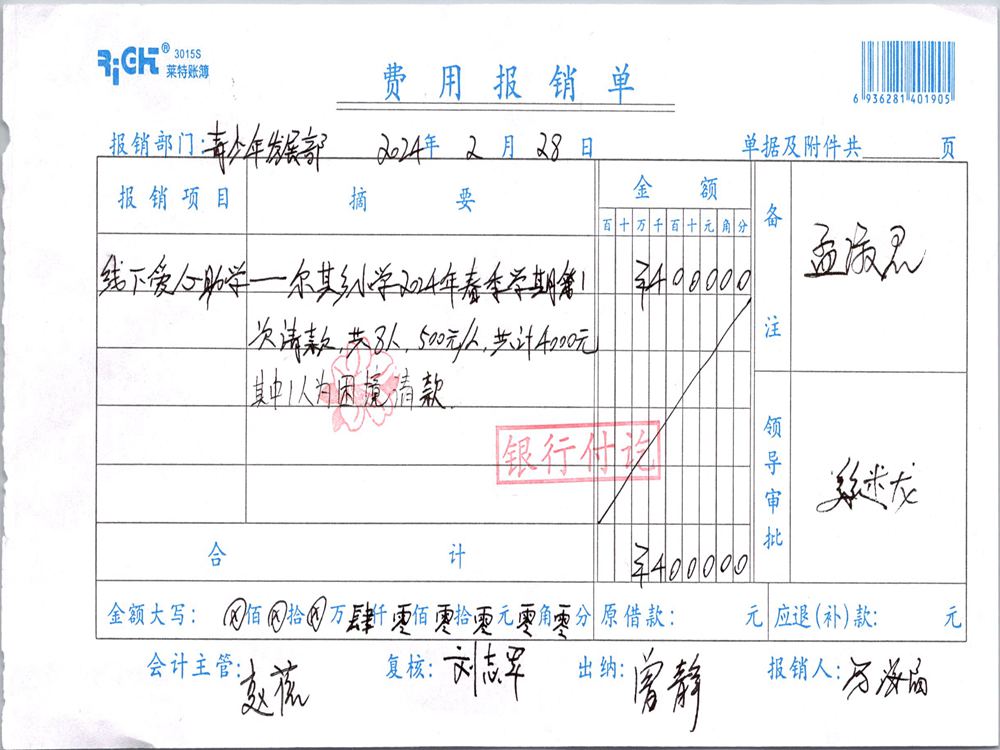 RiCHT® 3015S
莱特账簿
费用报销单
6 936281 401905
报销部门:青少年发展部 2024年 2月 28日 单据及附件共 页
报销项目 摘要 金额 备注
百十万千百十元角分
线下爱心助学——尔其乡小学2024年春季学期第1 ¥400000
次请款,共8人,500元/人,共计4000元
其中1人为困境请款.
银行付讫
领导审批
合计 ¥400000
金额大写: ⊗佰⊗拾⊗万肆仟零佰零拾零元零角零分 原借款: 元 应退(补)款: 元
会计主管: 复核: 刘志军 出纳: 曾静 报销人: